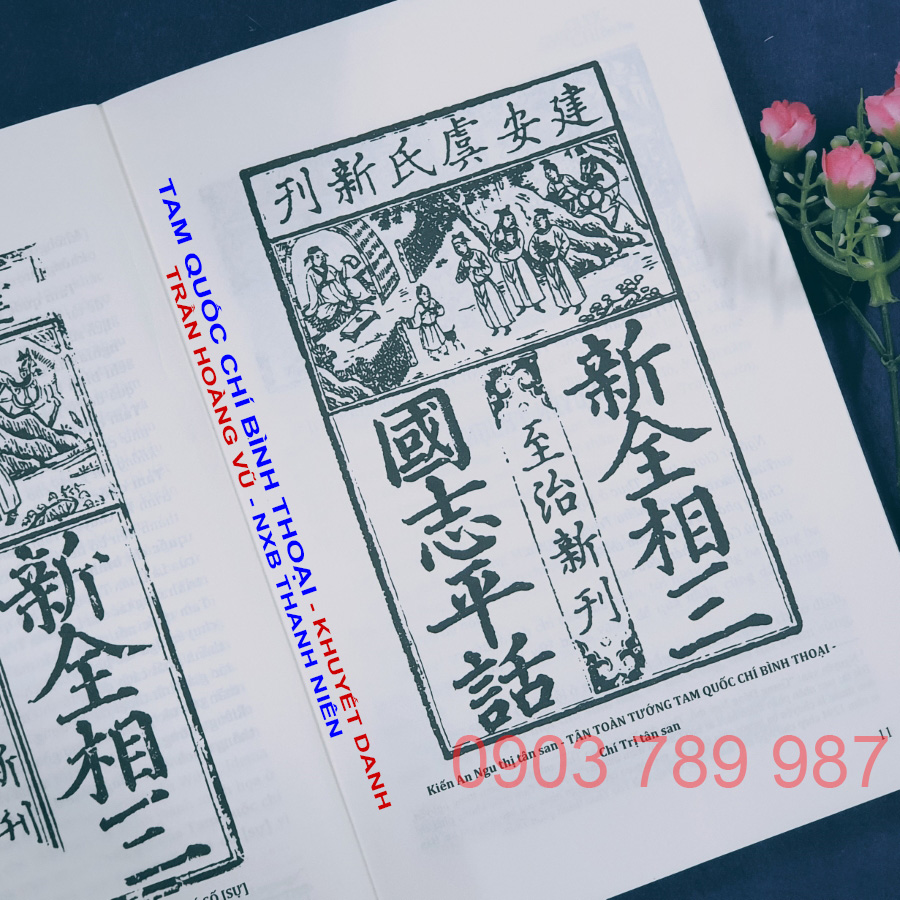 新全相三
新刊
[SỰ]
建安虞氏新刊
新全相三
至治新刊
國志平話
Kiến An Ngu thị tân san - TÂN TOÀN TƯỚNG TAM QUỐC CHÍ BÌNH THOẠI -
Chí Trị tân san
11
TAM QUỐC CHÍ BÌNH THOẠI - KHUYẾT DANH
TRẦN HOÀNG VŨ - NXB THANH NIÊN
0903 789 987